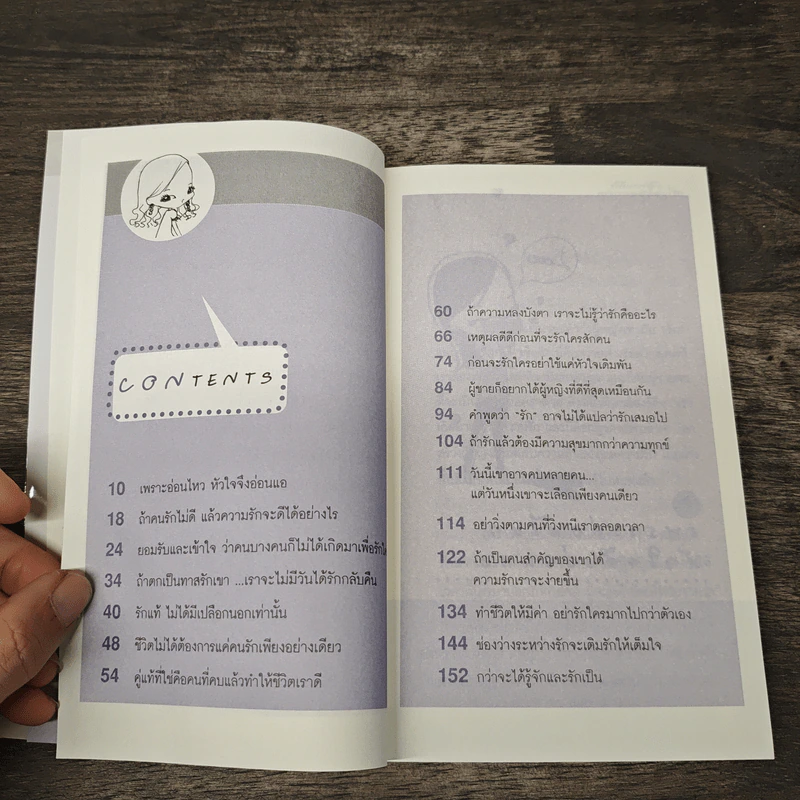 CONTENTS
10 เพราะอ่อนไหว หัวใจจึงอ่อนแอ
18 ถ้าคนรักไม่ดี แล้วความรักจะดีได้อย่างไร
24 ยอมรับและเข้าใจ ว่าคนบางคนก็ไม่ได้เกิดมาเพื่อรักใคร
34 ถ้าตกเป็นทาสรักเขา ...เราจะไม่มีวันได้รักกลับคืน
40 รักแท้ ไม่ได้มีเปลือกนอกเท่านั้น
48 ชีวิตไม่ได้ต้องการแค่คนรักเพียงอย่างเดียว
54 คู่แท้ที่ใช่คือคนที่คบแล้วทำให้ชีวิตเราดี
60 ถ้าความหลงบังตา เราจะไม่รู้ว่ารักคืออะไร
66 เหตุผลดีดีก่อนที่จะรักใครสักคน
74 ก่อนจะรักใครอย่าใช้แค่หัวใจเดิมพัน
84 ผู้ชายก็อยากได้ผู้หญิงที่ดีที่สุดเหมือนกัน
94 คำพูดว่า "รัก" อาจไม่ได้แปลว่ารักเสมอไป
104 ถ้ารักแล้วต้องมีความสุขมากกว่าความทุกข์
111 วันนี้เขาอาจคบหลายคน...
แต่วันหนึ่งเขาจะเลือกเพียงคนเดียว
114 อย่าวิ่งตามคนที่วิ่งหนีเราตลอดเวลา
122 ถ้าเป็นคนสำคัญของเขาได้
ความรักเราจะง่ายขึ้น
134 ทำชีวิตให้มีค่า อย่ารักใครมากไปกว่าตัวเอง
144 ช่องว่างระหว่างรักจะเติมรักให้เต็มใจ
152 กว่าจะได้รู้จักและรักเป็น